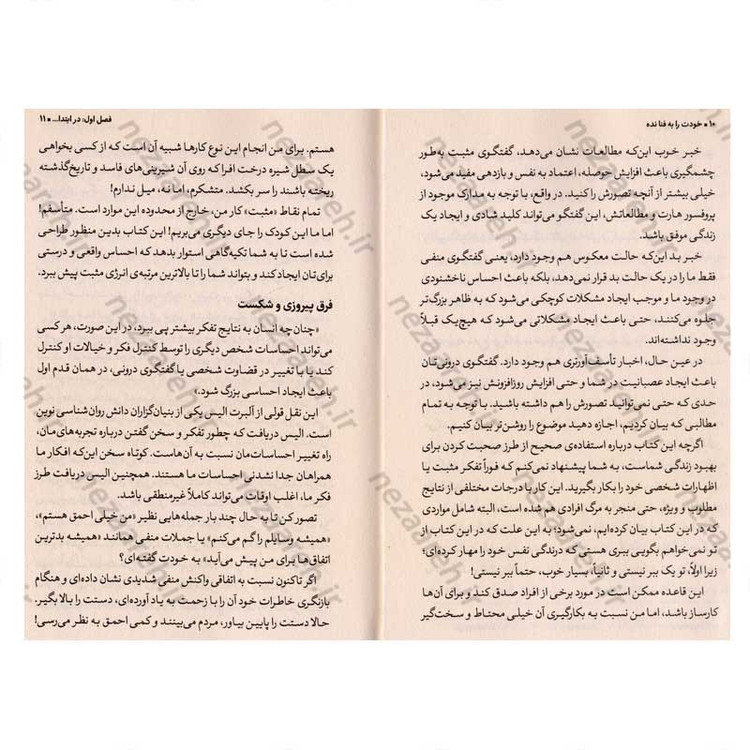 ۱۰ • خودت را به فنا نده
خبر خوب این‌که مطالعات نشان می‌دهد، گفتگوی مثبت به‌طور
چشمگیری باعث افزایش حوصله، اعتماد به نفس و بازدهی مفید می‌شود،
خیلی بیشتر از آنچه تصورش را کنید. در واقع، با توجه به مدارک موجود از
پروفسور هارت و مطالعاتش، این گفتگو می‌تواند کلید شادی و ایجاد یک
زندگی موفق باشد.
خبر بد این‌که حالت معکوس هم وجود دارد، یعنی گفتگوی منفی
فقط ما را در یک حالت بد قرار نمی‌دهد، بلکه باعث احساس ناخشنودی
در وجود ما و موجب ایجاد مشکلات کوچکی می‌شود که به ظاهر بزرگ‌تر
جلوه می‌کنند، حتی باعث ایجاد مشکلاتی می‌شود که هیچ‌یک قبلاً
وجود نداشته‌اند.
در عین حال، اخبار تأسف‌آورتری هم وجود دارد. گفتگوی درونی‌تان
باعث ایجاد عصبانیت در شما و حتی افزایش روزافزونش نیز می‌شود، در
حدی که حتی نمی‌توانید تصورش را هم داشته باشید. با توجه به تمام
مطالبی که بیان کردیم، اجازه دهید موضوع را روشن‌تر بیان کنیم.
اگرچه این کتاب درباره استفاده‌ی صحیح از طرز صحبت کردن برای
بهبود زندگی شماست، به شما پیشنهاد نمی‌کنم که فوراً تفکر مثبت یا
اظهارات شخصی خود را بکار بگیرید. این کار با درجات مختلفی از نتایج
مطلوب و ویژه، حتی منجر به مرگ افرادی هم شده است، البته شامل مواردی
که در این کتاب بیان کرده‌ایم، نمی‌شود؛ به این علت که در این کتاب از
تو نمی‌خواهم بگویی ببری هستی که در زندگی نفس خود را مهار کرده‌ای؛
زیرا اولاً، تو یک ببر نیستی و ثانیاً، بسیار خوب، حتماً ببر نیستی!
این قاعده ممکن است در مورد برخی از افراد صدق کند و برای آن‌ها
کارساز باشد، اما من نسبت به بکارگیری آن خیلی محتاط و سخت‌گیر
فصل اول: در ابتدا... • ۱۱
هستم. برای من انجام این نوع کارها شبیه آن است که از کسی بخواهی
یک سطل شیره درخت افرا که روی آن شیرینی‌های فاسد و تاریخ‌گذشته
ریخته باشند را سر بکشد. متشکرم، اما نه، میل ندارم!
تمام نقاط «مثبت» کار من، خارج از محدوده این موارد است. متأسفم!
اما ما این کودک را جای دیگری می‌بریم! این کتاب بدین منظور طراحی
شده است تا به شما تکیه‌گاهی استوار بدهد که احساس واقعی و درستی
برای‌تان ایجاد کند و بتواند شما را تا بالاترین مرتبه‌ی انرژی مثبت پیش ببرد.
فرق پیروزی و شکست
«چنان‌چه انسان به نتایج تفکر بیشتر پی ببرد، در این صورت، هر کسی
می‌تواند احساسات شخص دیگری را توسط کنترل فکر و خیالات او کنترل
کند یا با تغییر در قضاوت شخصی یا گفتگوی درونی، در همان قدم اول
باعث ایجاد احساسی بزرگ شود.»
این نقل قولی از آلبرت الیس یکی از بنیان‌گزاران دانش روان‌شناسی نوین
است. الیس دریافت که چطور تفکر و سخن گفتن درباره تجربه‌های‌مان،
راه تغییر احساسات‌مان نسبت به آن‌هاست. کوتاه سخن این‌که افکار ما
همراهان جدا نشدنی احساسات ما هستند. همچنین الیس دریافت طرز
فکر ما، اغلب اوقات می‌تواند کاملاً غیرمنطقی باشد.
تصور کن تا به حال چند بار جمله‌هایی نظیر «من خیلی احمق هستم»،
«همیشه وسایلم را گم می‌کنم» یا جملات منفی همانند «همیشه بدترین
اتفاق‌ها برای من پیش می‌آید» به خودت گفته‌ای؟
اگر تاکنون نسبت به اتفاقی واکنش منفی شدیدی نشان داده‌ای و هنگام
بازنگری خاطرات خود آن را با زحمت به یاد آورده‌ای، دستت را بالا بگیر.
حالا دستت را پایین بیاور، مردم می‌بینند و کمی احمق به نظر می‌رسی!
nezaareh.ir